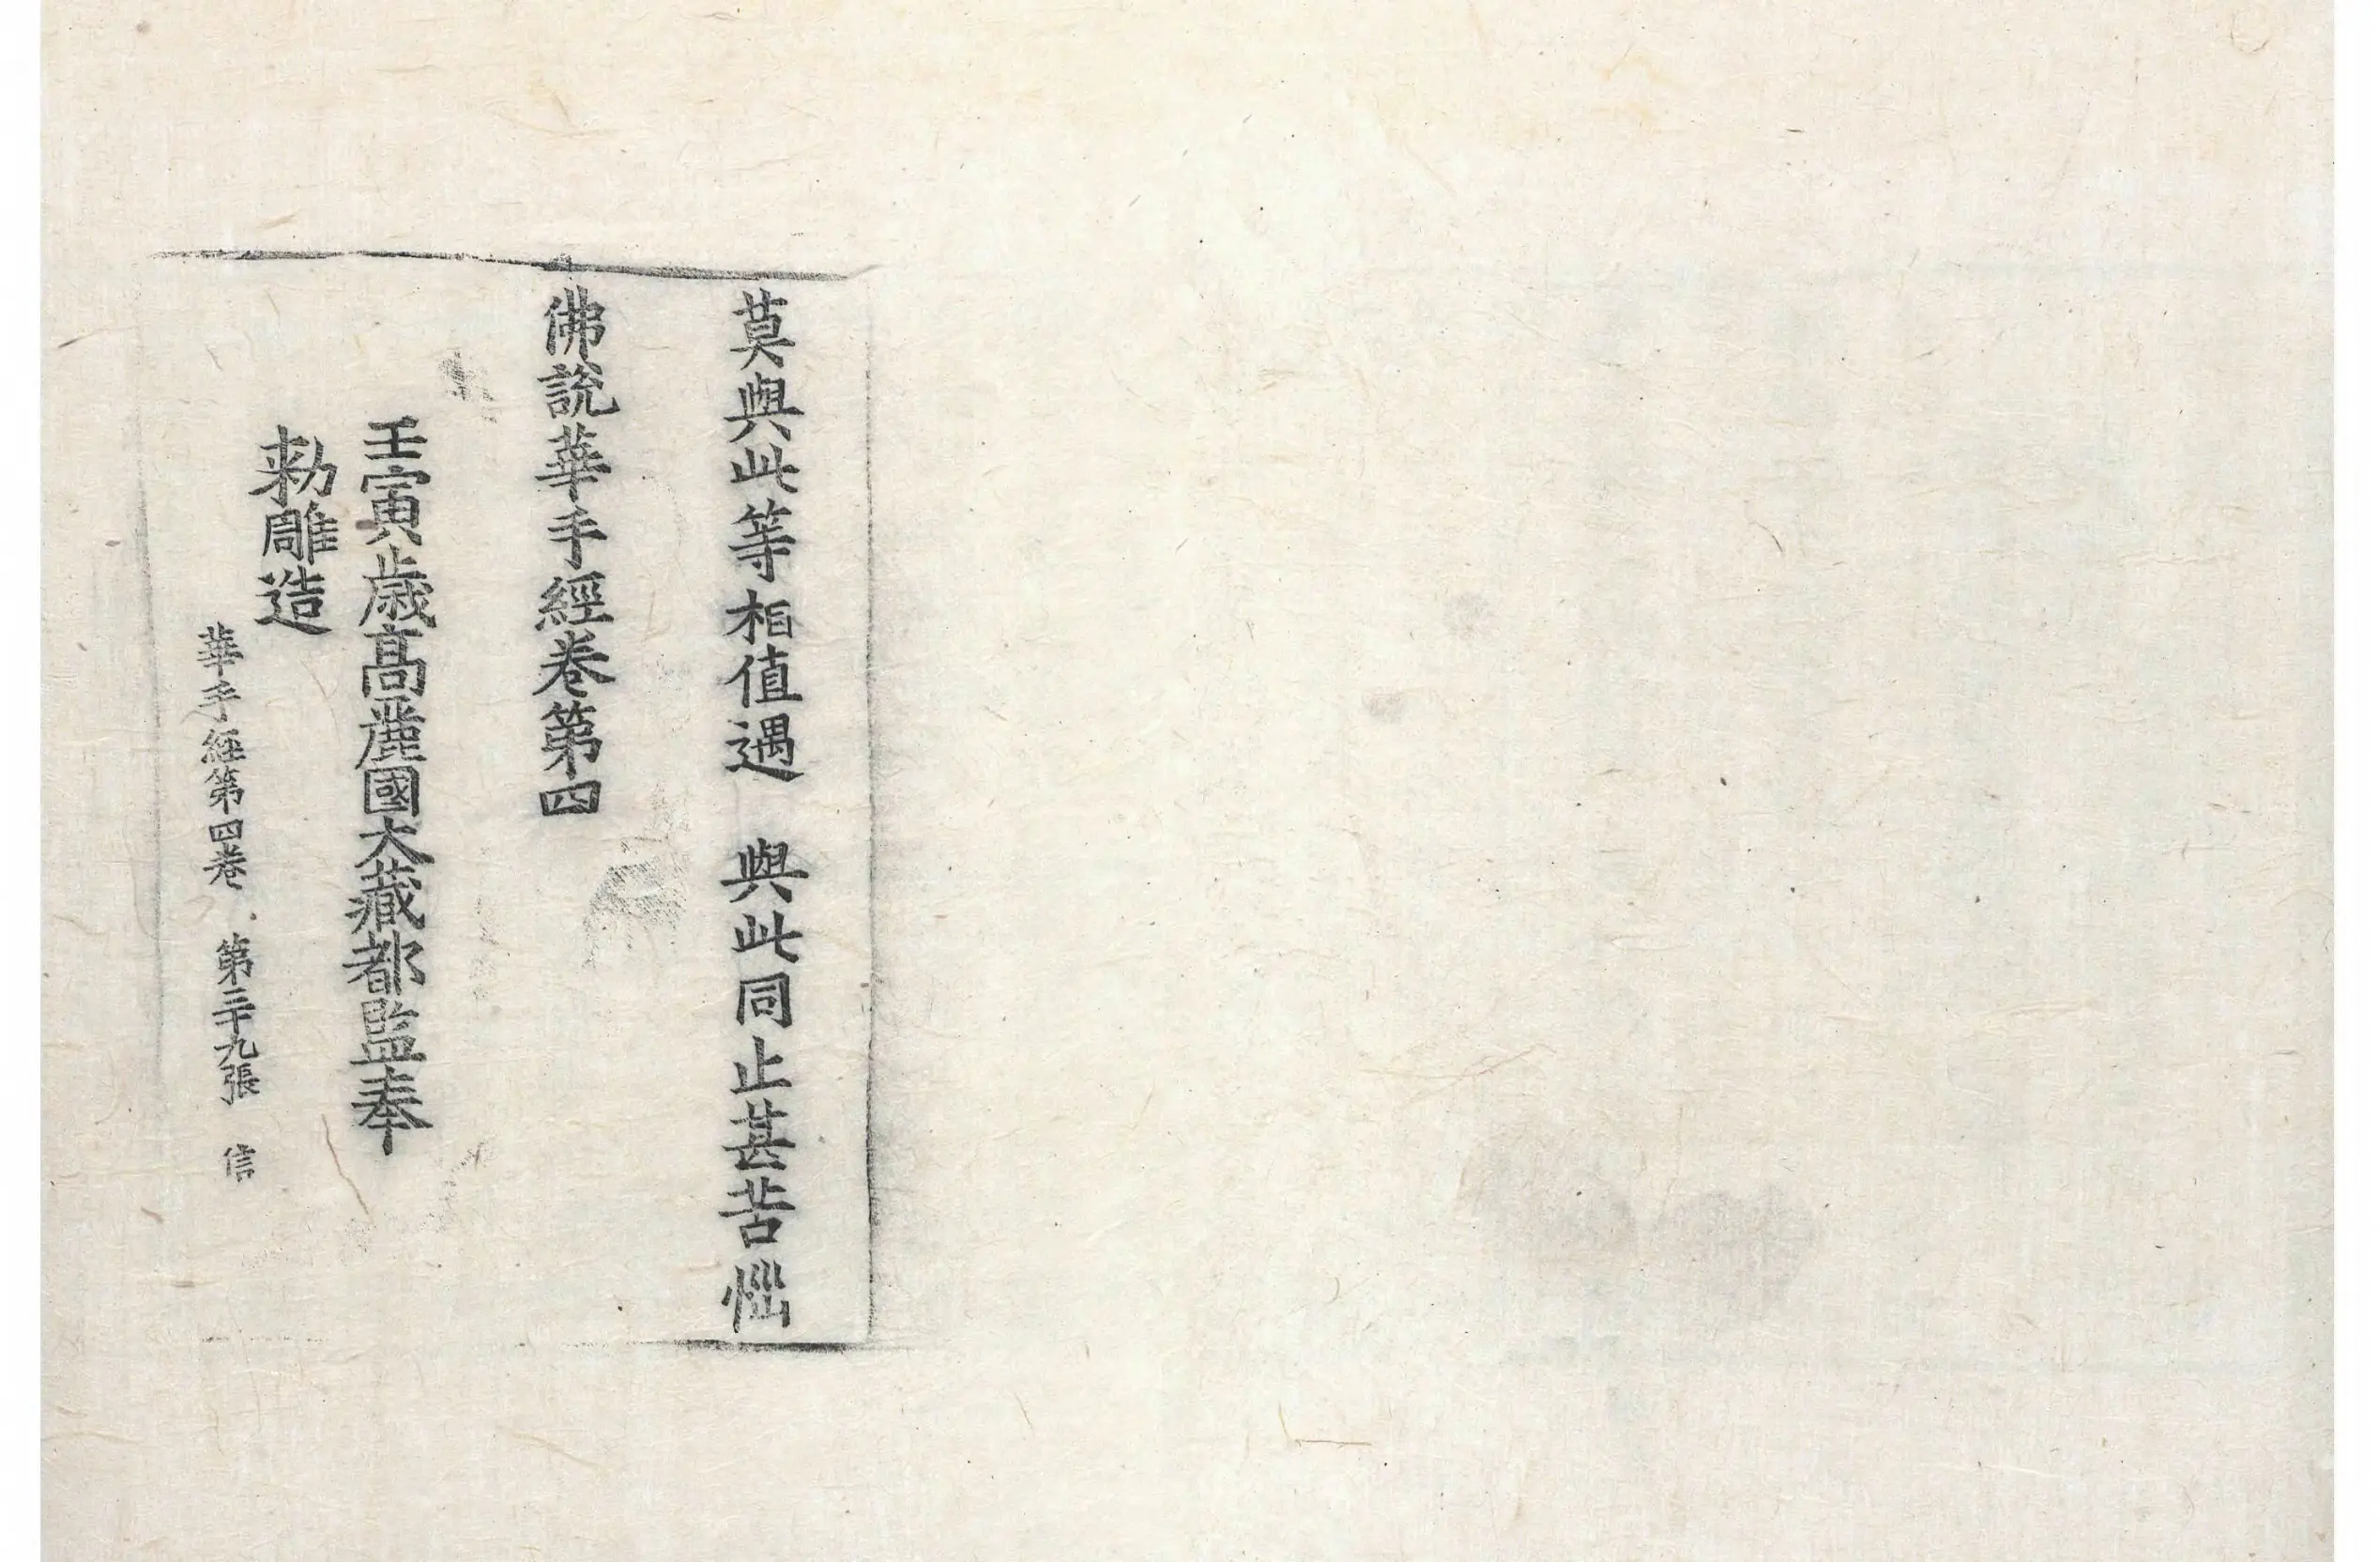 莫與此等相值遇　與此同止甚苦惱
佛說華手經卷第四
壬寅歲高麗國大藏都監奉
勅雕造
華手經第四卷　第三十九張　信